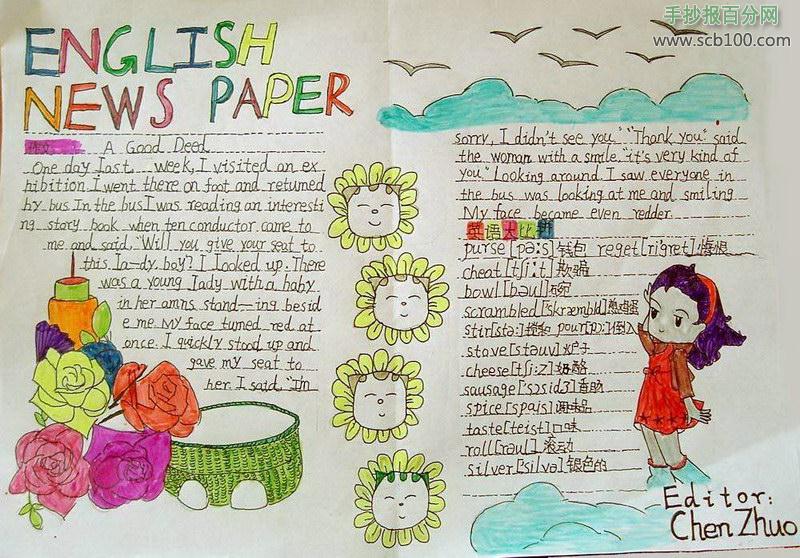 手抄报百分网
www.scb100.com
ENGLISH
NEWS PAPER
A Good Deed
One day last week, I visited an ex
hibition. I went there on foot and returned
by bus. In the bus I was reading an interesti
ng story book when ten conductor came to
me and said, "Will you give your seat to
this la-dy, boy? I looked up. There
was a young lady with a baby
in her amns stand-ing besid
e me. My face tumed red at
once. I quickly stood up and
gave my seat to
her. I said. "I'm
sorry, I didn't see you." "Thank you" said
the woman with a smile. "it's very kind of
you." Looking around. I saw everyone in
the bus was looking at me and smiling
My face became even redder.
英语大比拼
purse [pə:s] 钱包 reget [rigret] 悔恨
cheat [tʃi:t] 欺骗
bowl [bəul] 碗
scrambled [skræmbld]
stir [stə:] 搅和 pour [pɔ:] 倒入
stove [stəuv] 炉子
cheese [tʃi:z] 奶酪
sausage ['sɔsidʒ] 香肠
spice [spais] 调味品
taste [teist] 口味
roll [rəul] 滚动
silver [silvə] 银色的
Editor:
Chen Zhuo